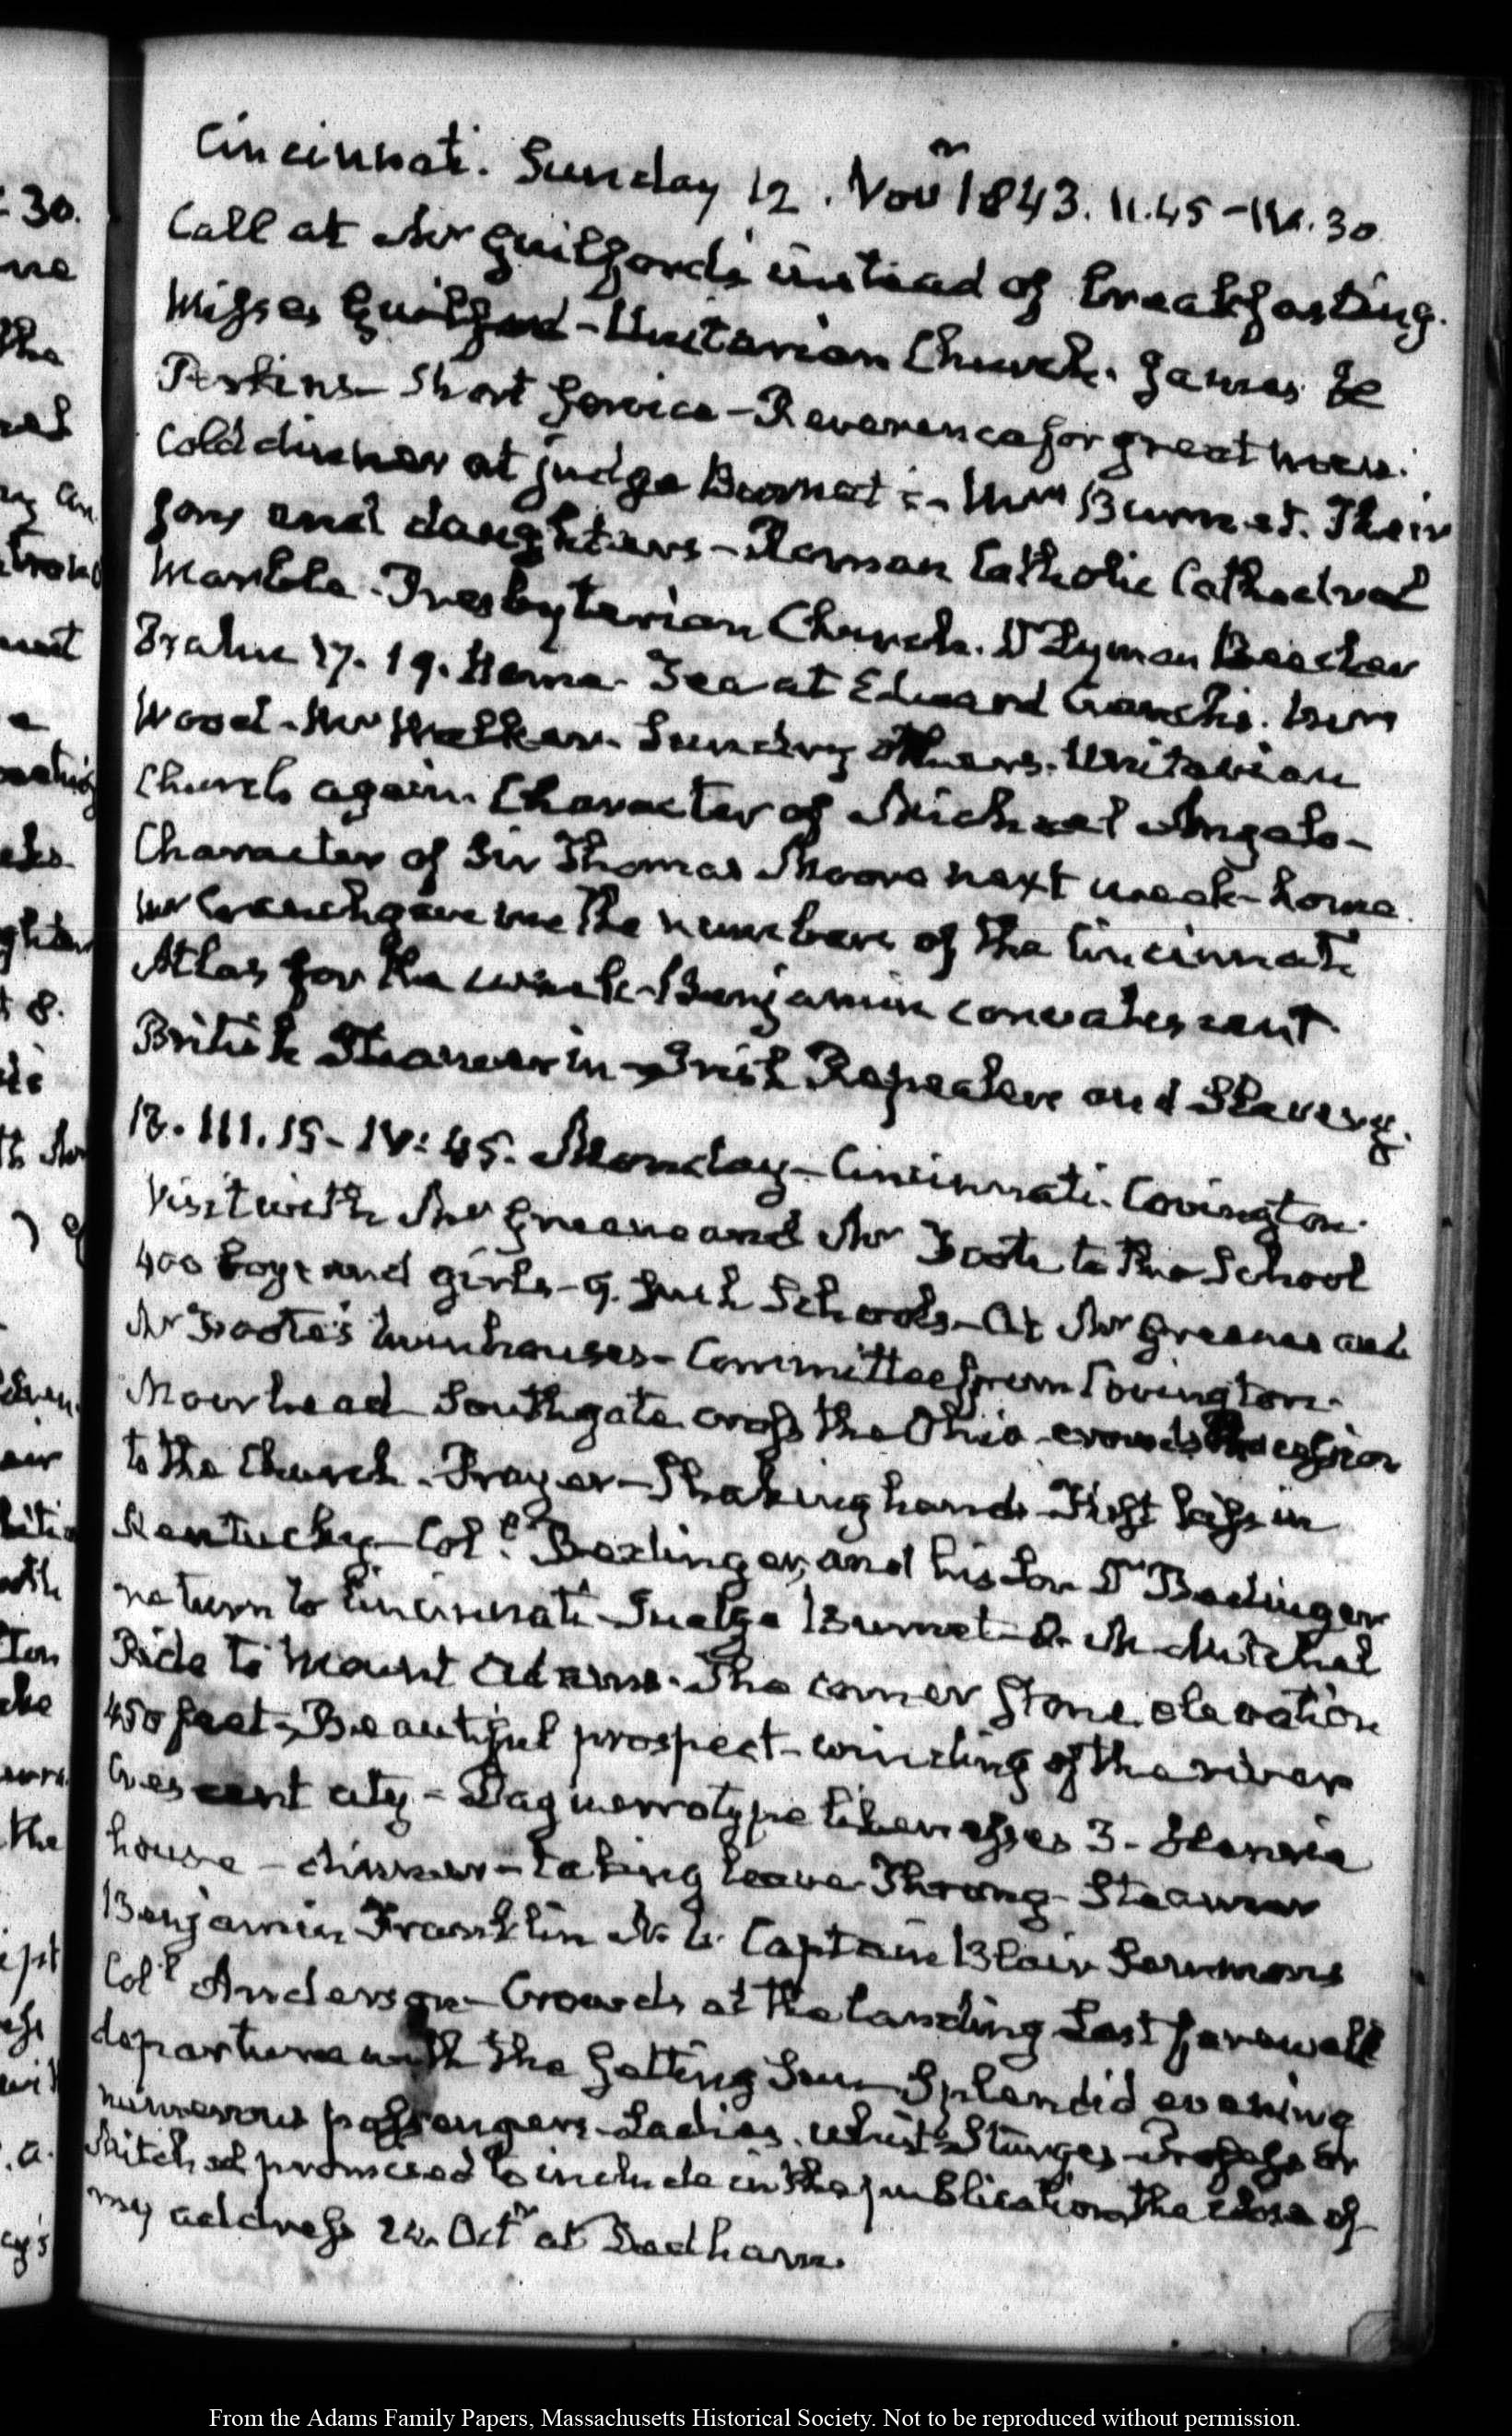 Cincinnati. Sunday 12. Novr 1843. II.45 – IV.30
Call at Mr Guilford's instead of breakfasting.
Misses Guilford – Unitarian Church. James H
Perkins – Short Service – Reverence for great men.
Cold dinner at judge Burnet's – Mrs Burnet. Their
Sons and daughters – Roman Catholic Cathedral
Marble. Presbyterian Church. Dr Lyman Beecher
Psalm 17. 19. Home. Tea at Edward Cranch's. Mrs
Wood – Mr Walker. Sundry others. Unitarian
Church again. Character of Michael Angelo –
Character of Sir Thomas Moore next week – home.
Mr Cranch gave me the numbers of the Cincinnati
Atlas for the week – Benjamin convalescent
British Steamer in – Irish Repealers and Slavery.
13. III.15 – IV:45. Monday – Cincinnati. Covington.
Visit with Mr Greene and Mr Foote to the School
400 boys and girls – 9. such Schools – At Mr Greene's and
Mr Foote's houses – Committee from Covington.
Moorhead – Southgate cross the Ohio – crowds Procession
to the Church – Prayer – Shaking hands – First kiss in
Kentucky – Coll. Bedinger, and his Son Dr Bedinger
return to Cincinnati – Judge Burnet – O. M. Mitchel
Ride to Mount Adams. The corner Stone, elevation
450 feet – Beautiful prospect – winding of the river
Crescent city – Daguerrotype likenesses 3 – Henrie
house – dinner – taking leave – Throng – Steamer
Benjamin Franklin N. 6. Captain Blair Summons
Coll Anderson – Crowds at the landing Last farewell
departure with the Setting Sun – Splendid evening
numerous passengers – Ladies. whist – Sturges – Professor
Mitchel promised to include in the publication, the close of
my address 26. Octr at Dedham.
From the Adams Family Papers, Massachusetts Historical Society. Not to be reproduced without permission.